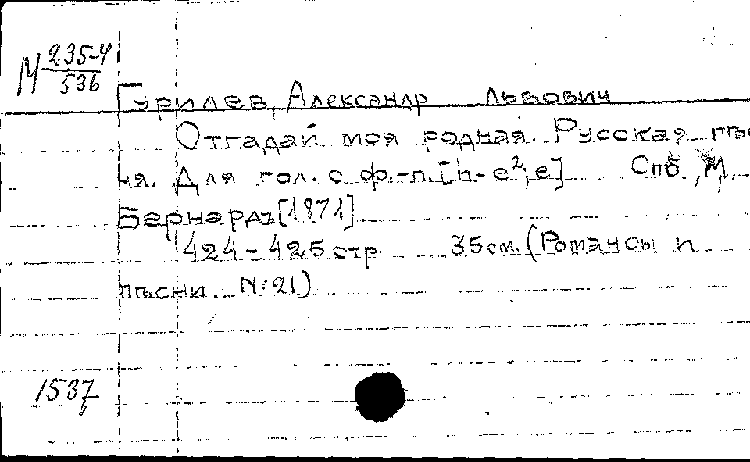 М 235-4
536
Гурилев, Александр Львович
Отгадай моя родная. Русская пѣс
ня. Для гол. с ф.-п. [h-e², e] Спб, М.
Бернардъ [1871]
424-425 стр 35 см. (Романсы и
пѣсни N: 21)
1537